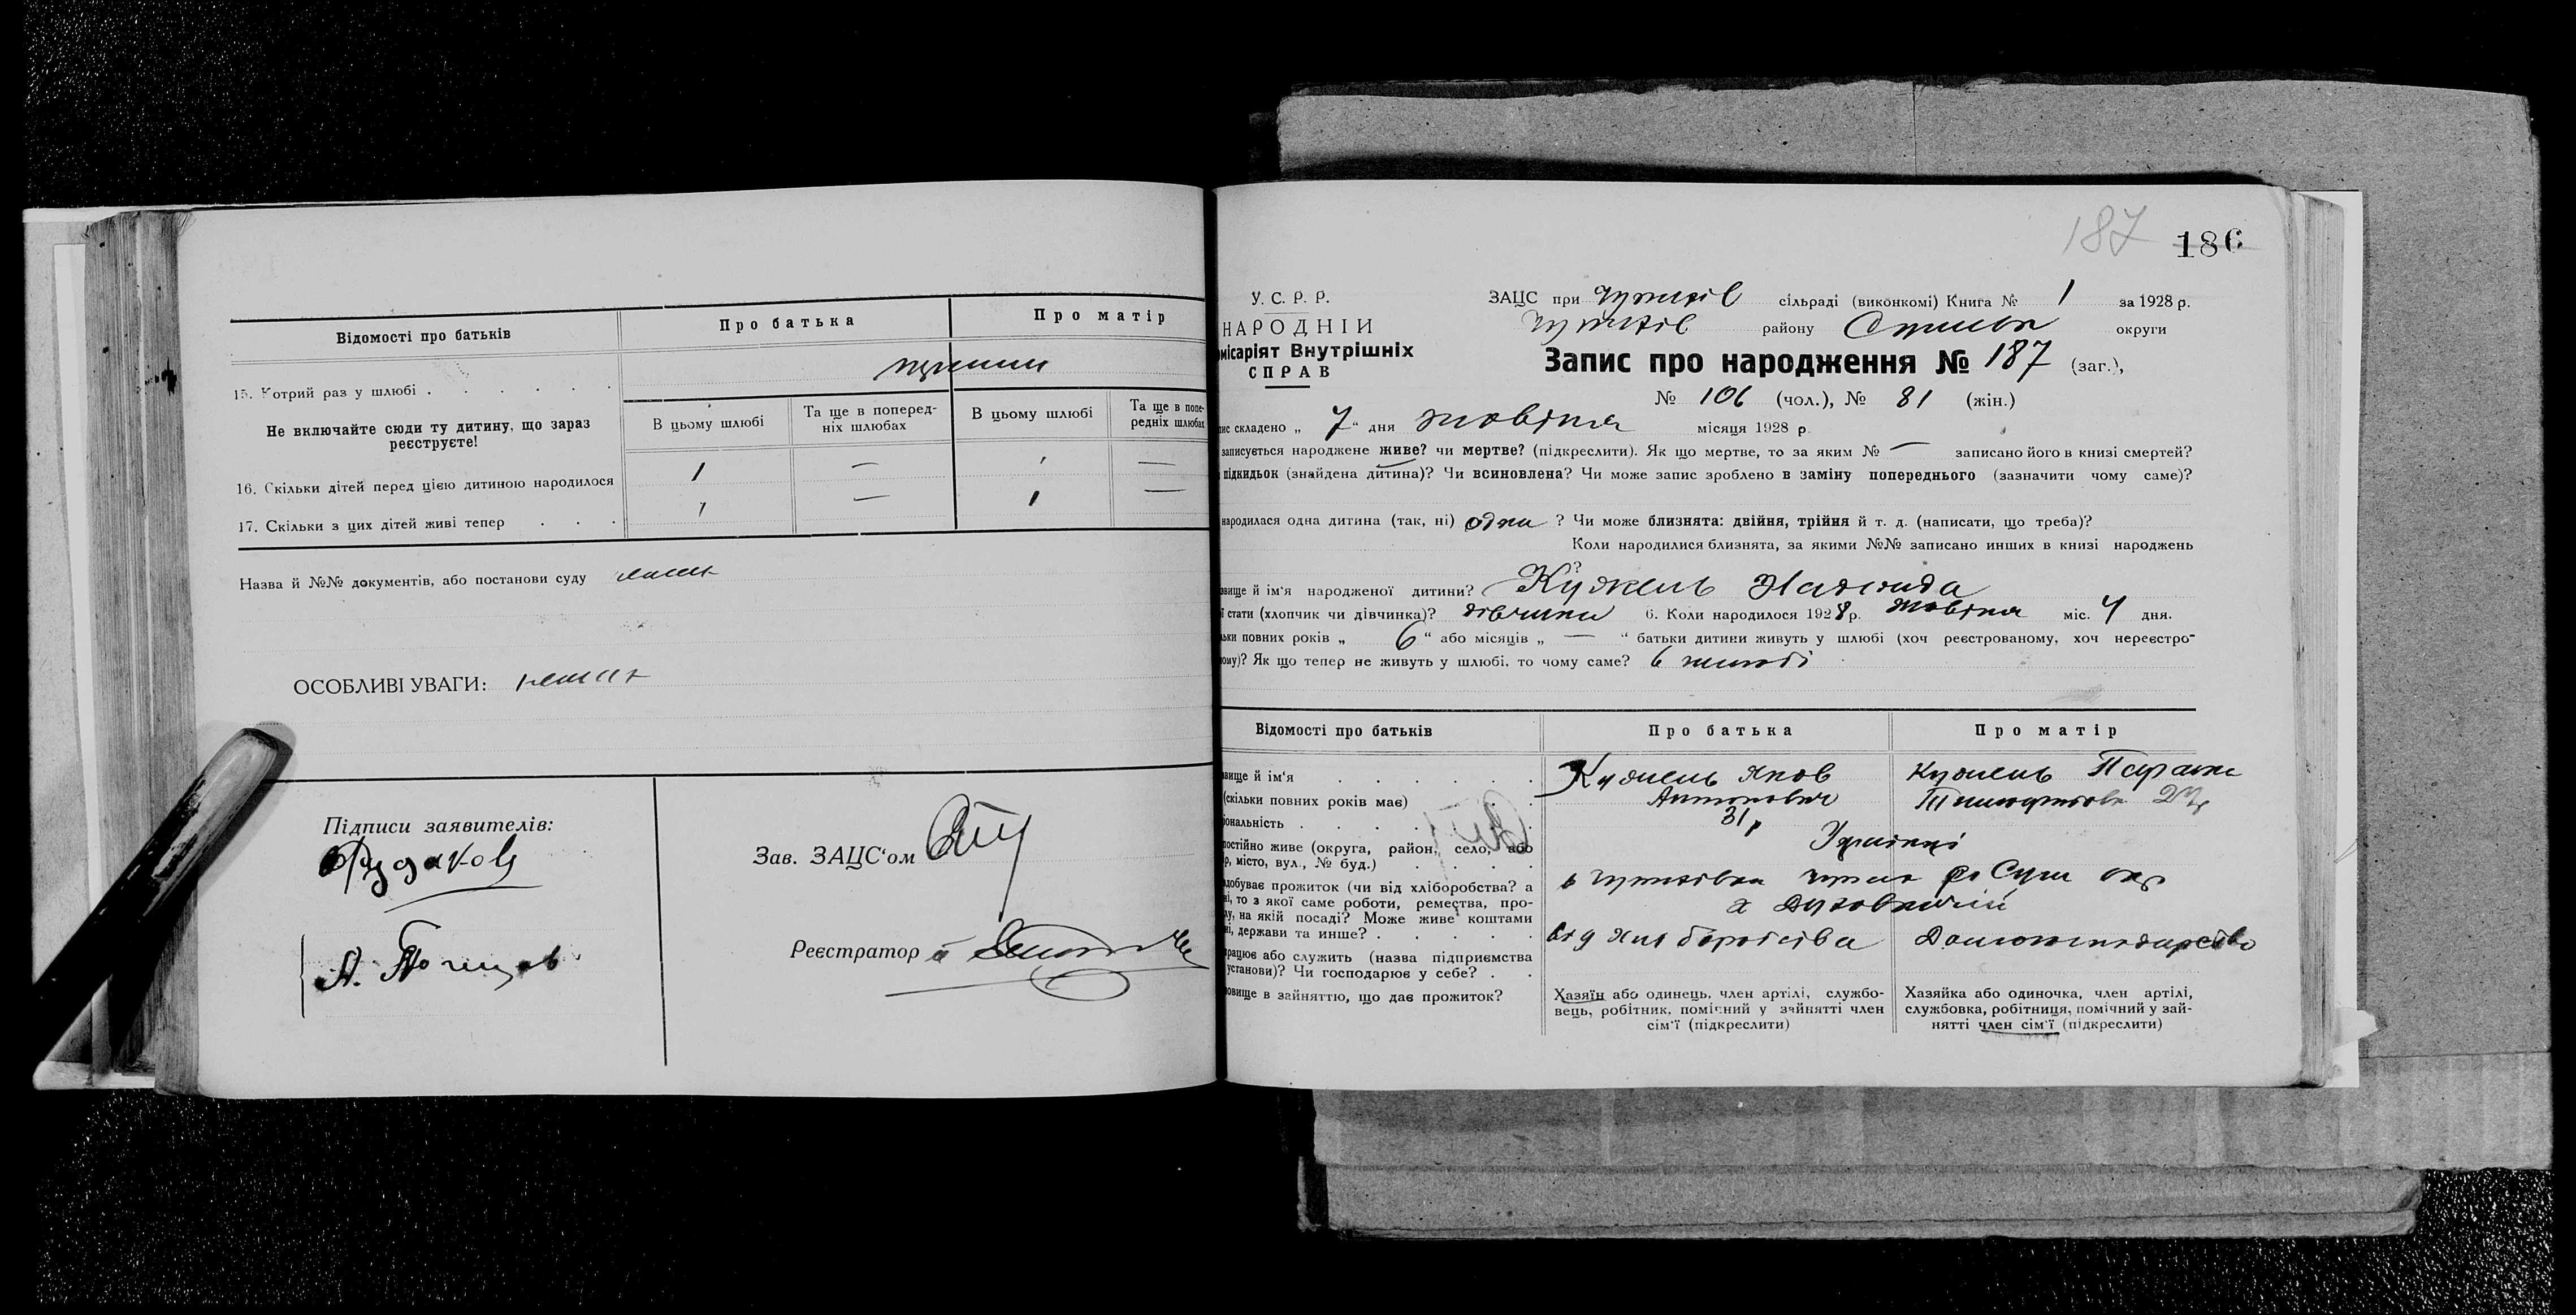 Відомості про батьків
Про батька
Про матір
15. Котрий раз у шлюбі . . . . . .
Не включайте сюди ту дитину, що зараз реєструєте!
В цьому шлюбі
Та ще в поперед-
ніх шлюбах
В цьому шлюбі
Та ще в попе-
редніх шлюбах
16. Скільки дітей перед цією дитиною народилося 1 — 1 —
17. Скільки з цих дітей живі тепер . . . 1 — 1 —
Назва й №№ документів, або постанови суду немає
ОСОБЛИВІ УВАГИ: немає
Підписи заявителів:
Зав. ЗАЦС'ом
Реєстратор
187 186
У. С. Р. Р.
НАРОДНІЙ
місаріят Внутрішніх
СПРАВ
ЗАЦС при сільраді (виконкомі) Книга № 1 за 1928 р.
району Сумськ округи
Запис про народження № 187 (заг.),
№ 106 (чол.), № 81 (жін.)
пис складено „ 7 “ дня жовтня місяця 1928 р.
записується народжене живе? чи мертве? (підкреслити). Як що мертве, то за яким № — записано його в книзі смертей?
підкидьок (знайдена дитина)? Чи всиновлена? Чи може запис зроблено в заміну попереднього (зазначити чому саме)?
народилася одна дитина (так, ні) одна ? Чи може близнята: двійня, трійня й т. д. (написати, що треба)?
Коли народилися близнята, за якими №№ записано инших в книзі народжень
?
звище й ім'я народженої дитини? Кужель Надежда
ї стати (хлопчик чи дівчинка)? дівчина 6. Коли народилося 1928 р. жовтня міс. 4 дня.
льки повних років „ 6 “ або місяців „ — “ батьки дитини живуть у шлюбі (хоч реєстрованому, хоч нереєстро-
ому)? Як що тепер не живуть у шлюбі, то чому саме? в шлюбі
Відомості про батьків
Про батька
Про матір
звище й ім'я . . . . . .
Кужель Яков
Антонович
31 р
Кужель Параска
(скільки повних років має)
іональність . . . . . .
Українці
постійно живе (округа, район, село, або
р, місто, вул., № буд.)
добуває прожиток (чи від хліборобства? а
ні, то з якої саме роботи, ремества, про-
у, на якій посаді? Може живе коштами
ні, держави та инше? . . . . .
від хліборобства
Домогосподарство
рацює або служить (назва підприємства
установи)? Чи господарює у себе? . .
овище в зайняттю, що дає прожиток?
Хазяїн або одинець, член артілі, службо-
вець, робітник, помічний у зайнятті член
сім'ї (підкреслити)
Хазяйка або одиночка, член артілі,
службовка, робітниця, помічний у зай-
нятті член сім'ї (підкреслити)